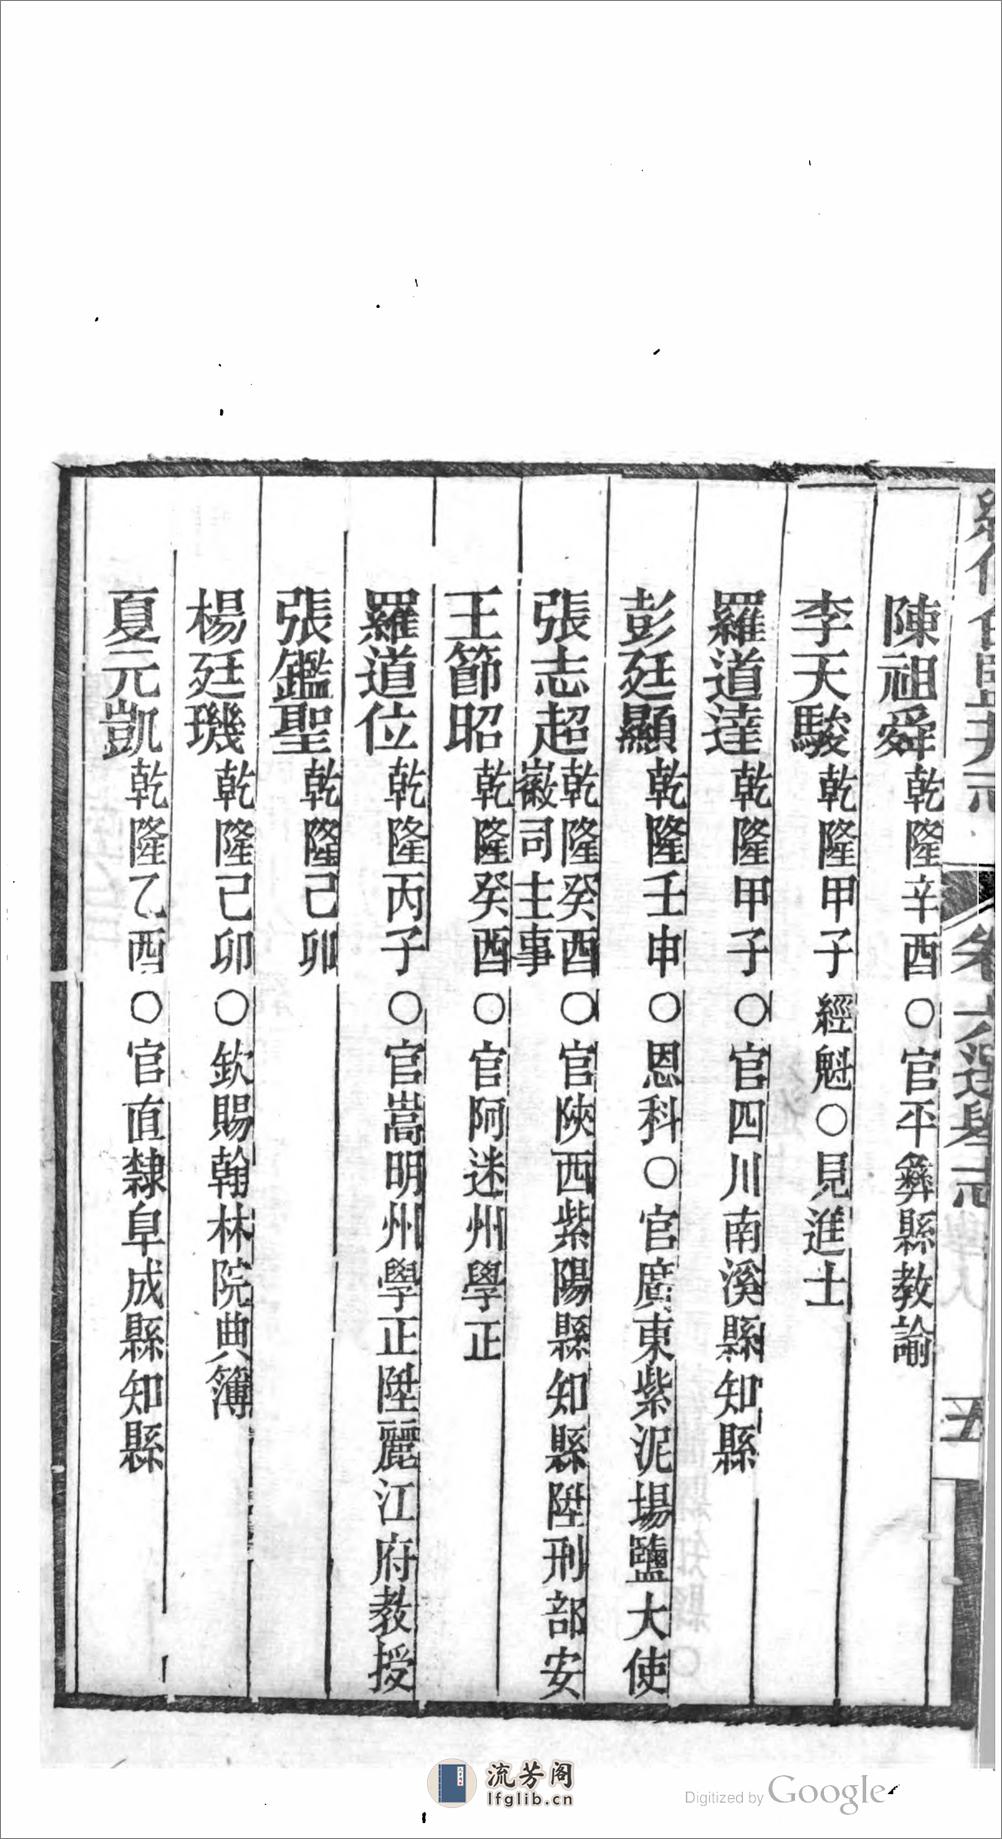 陳祖舜乾隆辛酉○官平彝縣教諭
李天駿乾隆甲子經魁○見進士
羅道達乾隆甲子○官四川南溪縣知縣
彭廷顯乾隆壬申○恩科○官廣東紫泥場鹽大使
張志超乾隆癸酉○官陝西紫陽縣知縣陞刑部安
徽司主事
王節昭乾隆癸酉○官阿迷州學正
羅道位乾隆丙子○官嵩明州學正陞麗江府教授
張鑑聖乾隆己卯
楊廷璣乾隆己卯○欽賜翰林院典簿
夏元凱乾隆乙酉○官直隸阜成縣知縣
卷六選舉志
五
流芳阁
lfglib.cn
Digitized by Google